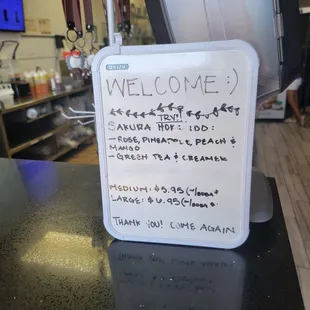 WELCOME :)
TRY!!
SAKURA MOK: IDD:
- ROSE, PINEAPPLE, PEACH &
MANGO
- GREEN TEA & CREAMER
MEDIUM: $5.95
LARGE: $6.95
THANK YOU! COME AGAIN